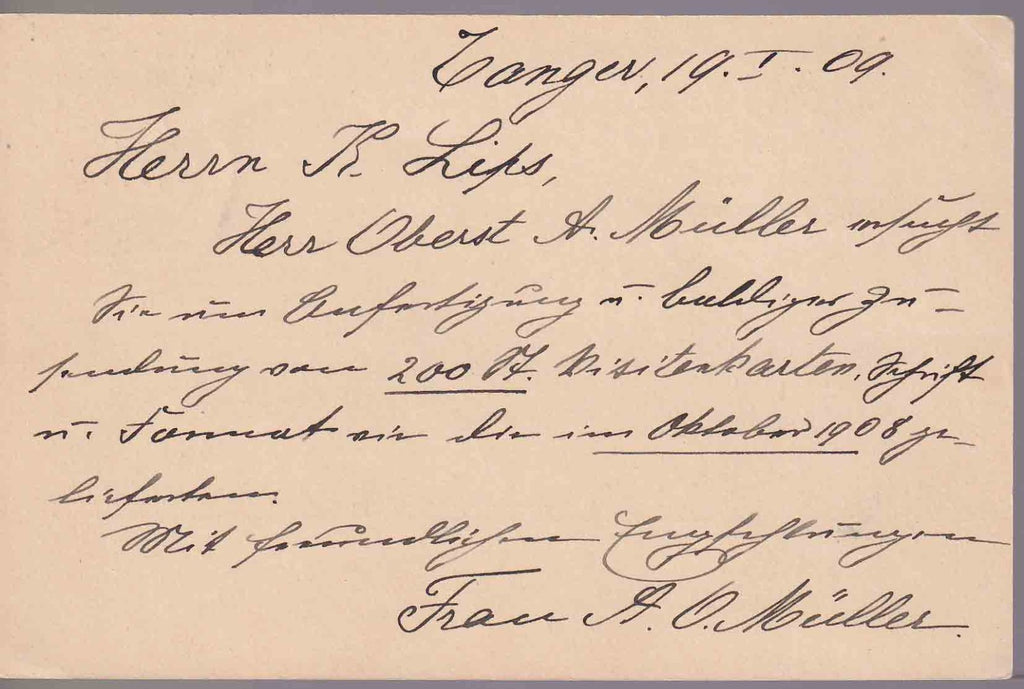 Tanger, 19. I. 09.
Herrn K. Lips,
Herr Oberst A. Müller ersucht
Sie um Anfertigung u. baldiger Zu-
sendung von 200 St. Visitenkarten, Schrift
u. Format wie die im Oktober 1908 ge-
lieferten.
Mit freundlichen Empfehlungen
Frau A. O. Müller.